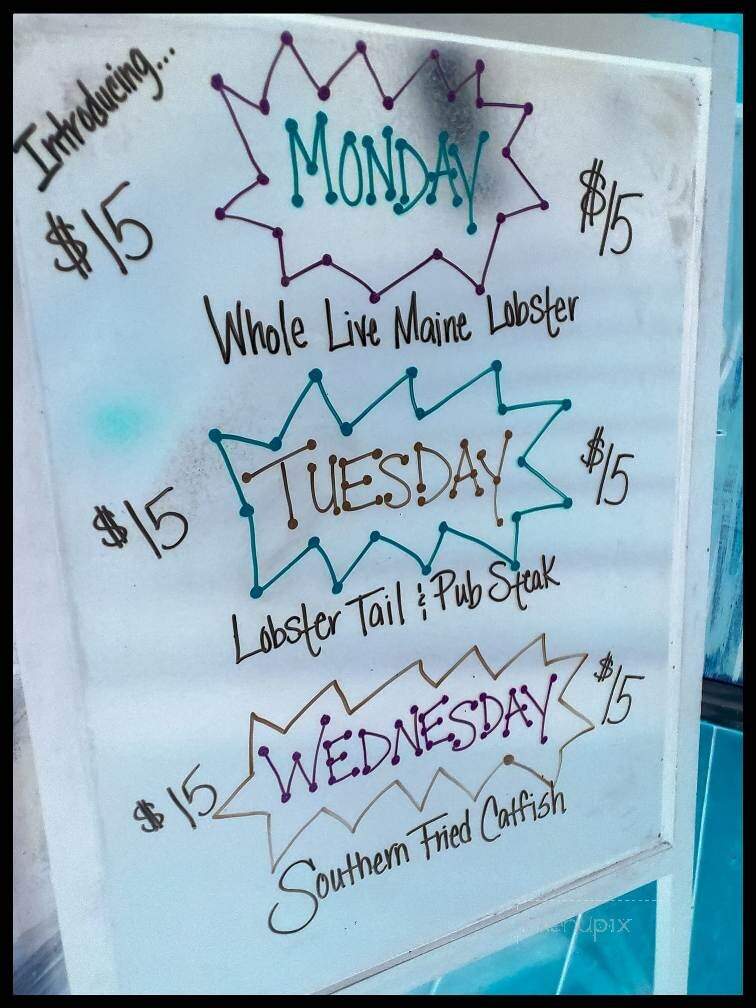 Introducing...
$15 MONDAY $15
Whole Live Maine Lobster
$15 TUESDAY $15
Lobster Tail & Pub Steak
$15 WEDNESDAY $15
Southern Fried Catfish